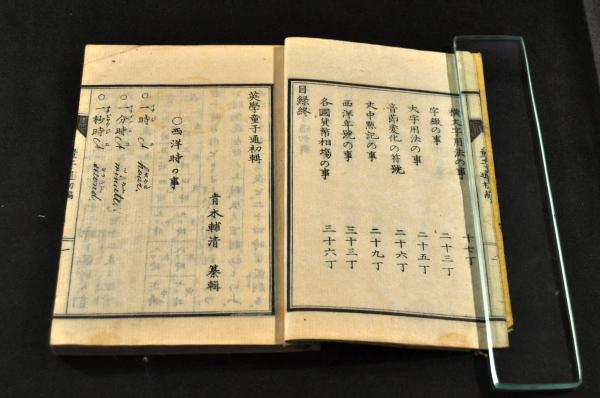 横文字用法の事 十七丁
字綴の事 二十三丁
大字用法の事 二十五丁
音節変化の符號 二十六丁
文中點記の事 二十九丁
西洋年號の事 三十三丁
各國貨幣相場の事 三十六丁
目録終
英學童子通初輯
青木輔清 纂輯
○西洋時の事
○一時 A hour.
○一分時 A minute.
○一秒時 A second.